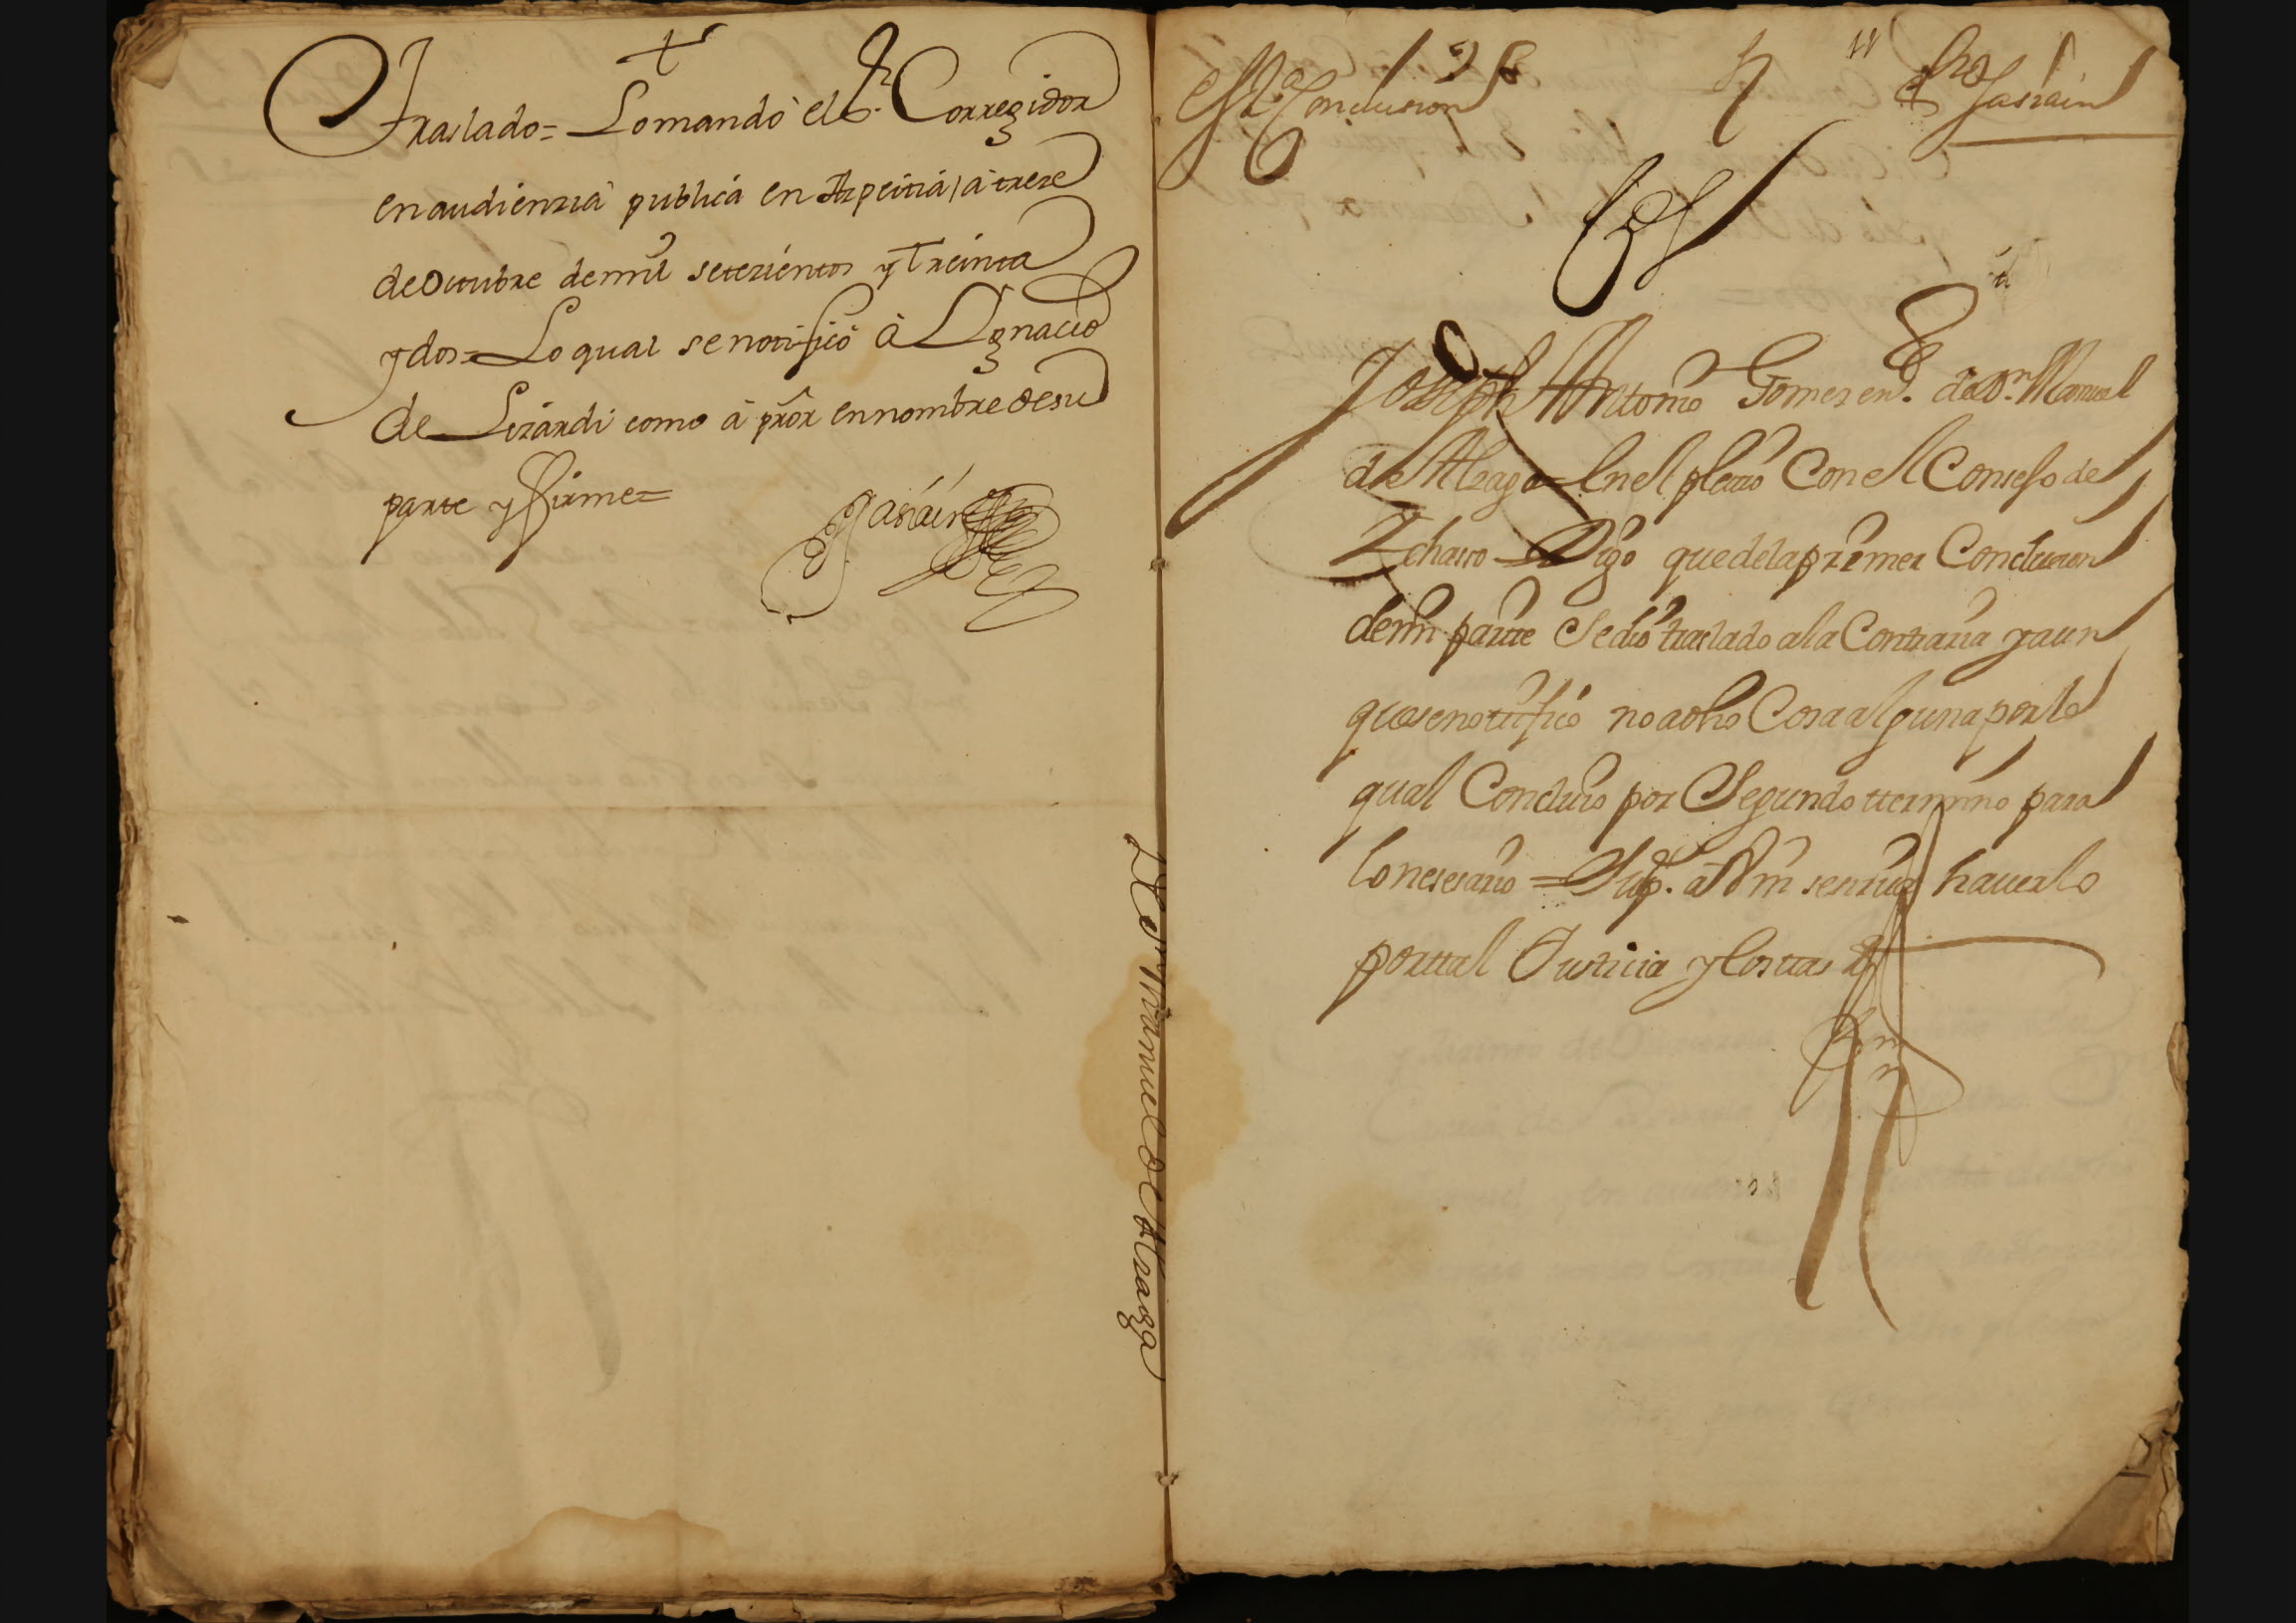 Traslado = Lo mando el Sr. Corregidor
en audienzia publica en Azpeitia, a treze
de Octubre de mil setezientos y treinta
y dos = Lo qual se notificó à Ygnacio
de Lizardi como à pror en nombre de su
parte y firme =
Gasrain
Dn Manuel de Alzaga
2a Conclusion
11
Gastain
Joseph Antonio Gomez en n. de Dn Manuel
de Alzaga = En el pleito Con el Consejo de
Ichasso = Digo que de la primer Conclusion
de mi parte Se dio traslado a la Contraria y aun
que se notifico no a dho Cosa alguna por lo
qual Concluio por Segundo termino para
lo nesesario = Supco. a Vm se sirva haverlo
por ttal Justicia y Costtas